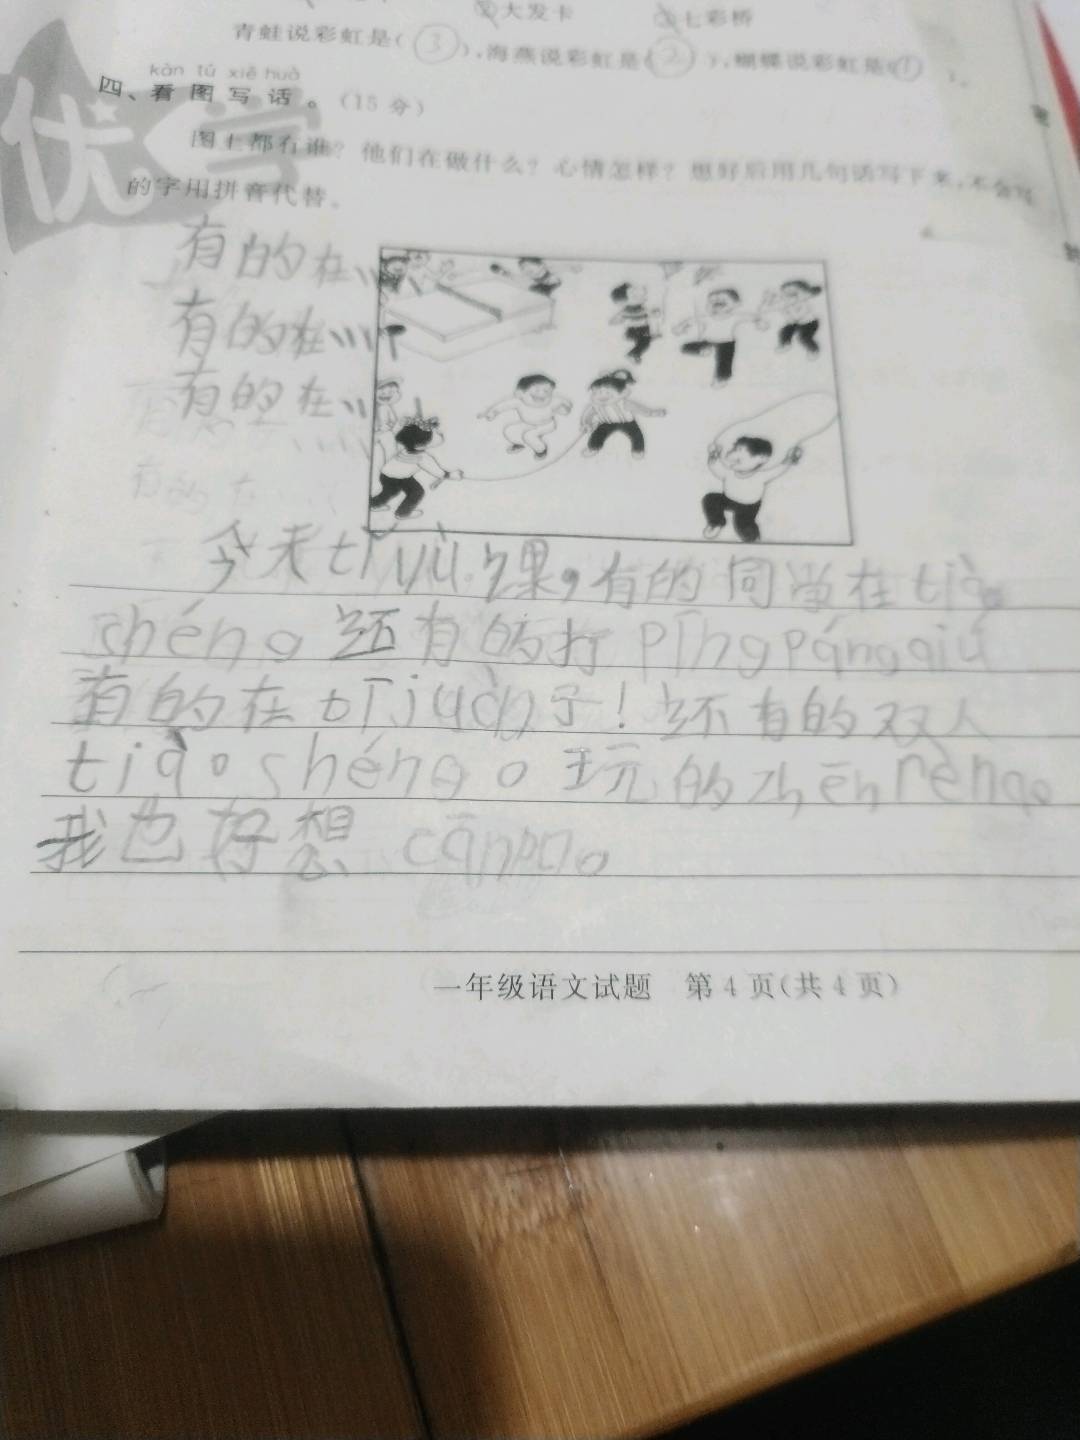 ②大发卡 ③七彩桥
青蛙说彩虹是(③),海燕说彩虹是(②),蝴蝶说彩虹是(①)。
kàn tú xiě huà
四、看图写话。(15分)
优学
图上都有谁?他们在做什么?心情怎样?想好后用几句话写下来,不会写
的字用拼音代替。
有的在
有的在
有的在
有的在
今天tǐ yù课,有的同学在tiào
shéng。还有的打pīngpángqiú
有的在tījiàn子!还有的双人
tiào shéng。玩的zhēn rèng。
我也好想cān
一年级语文试题 第4页(共4页)